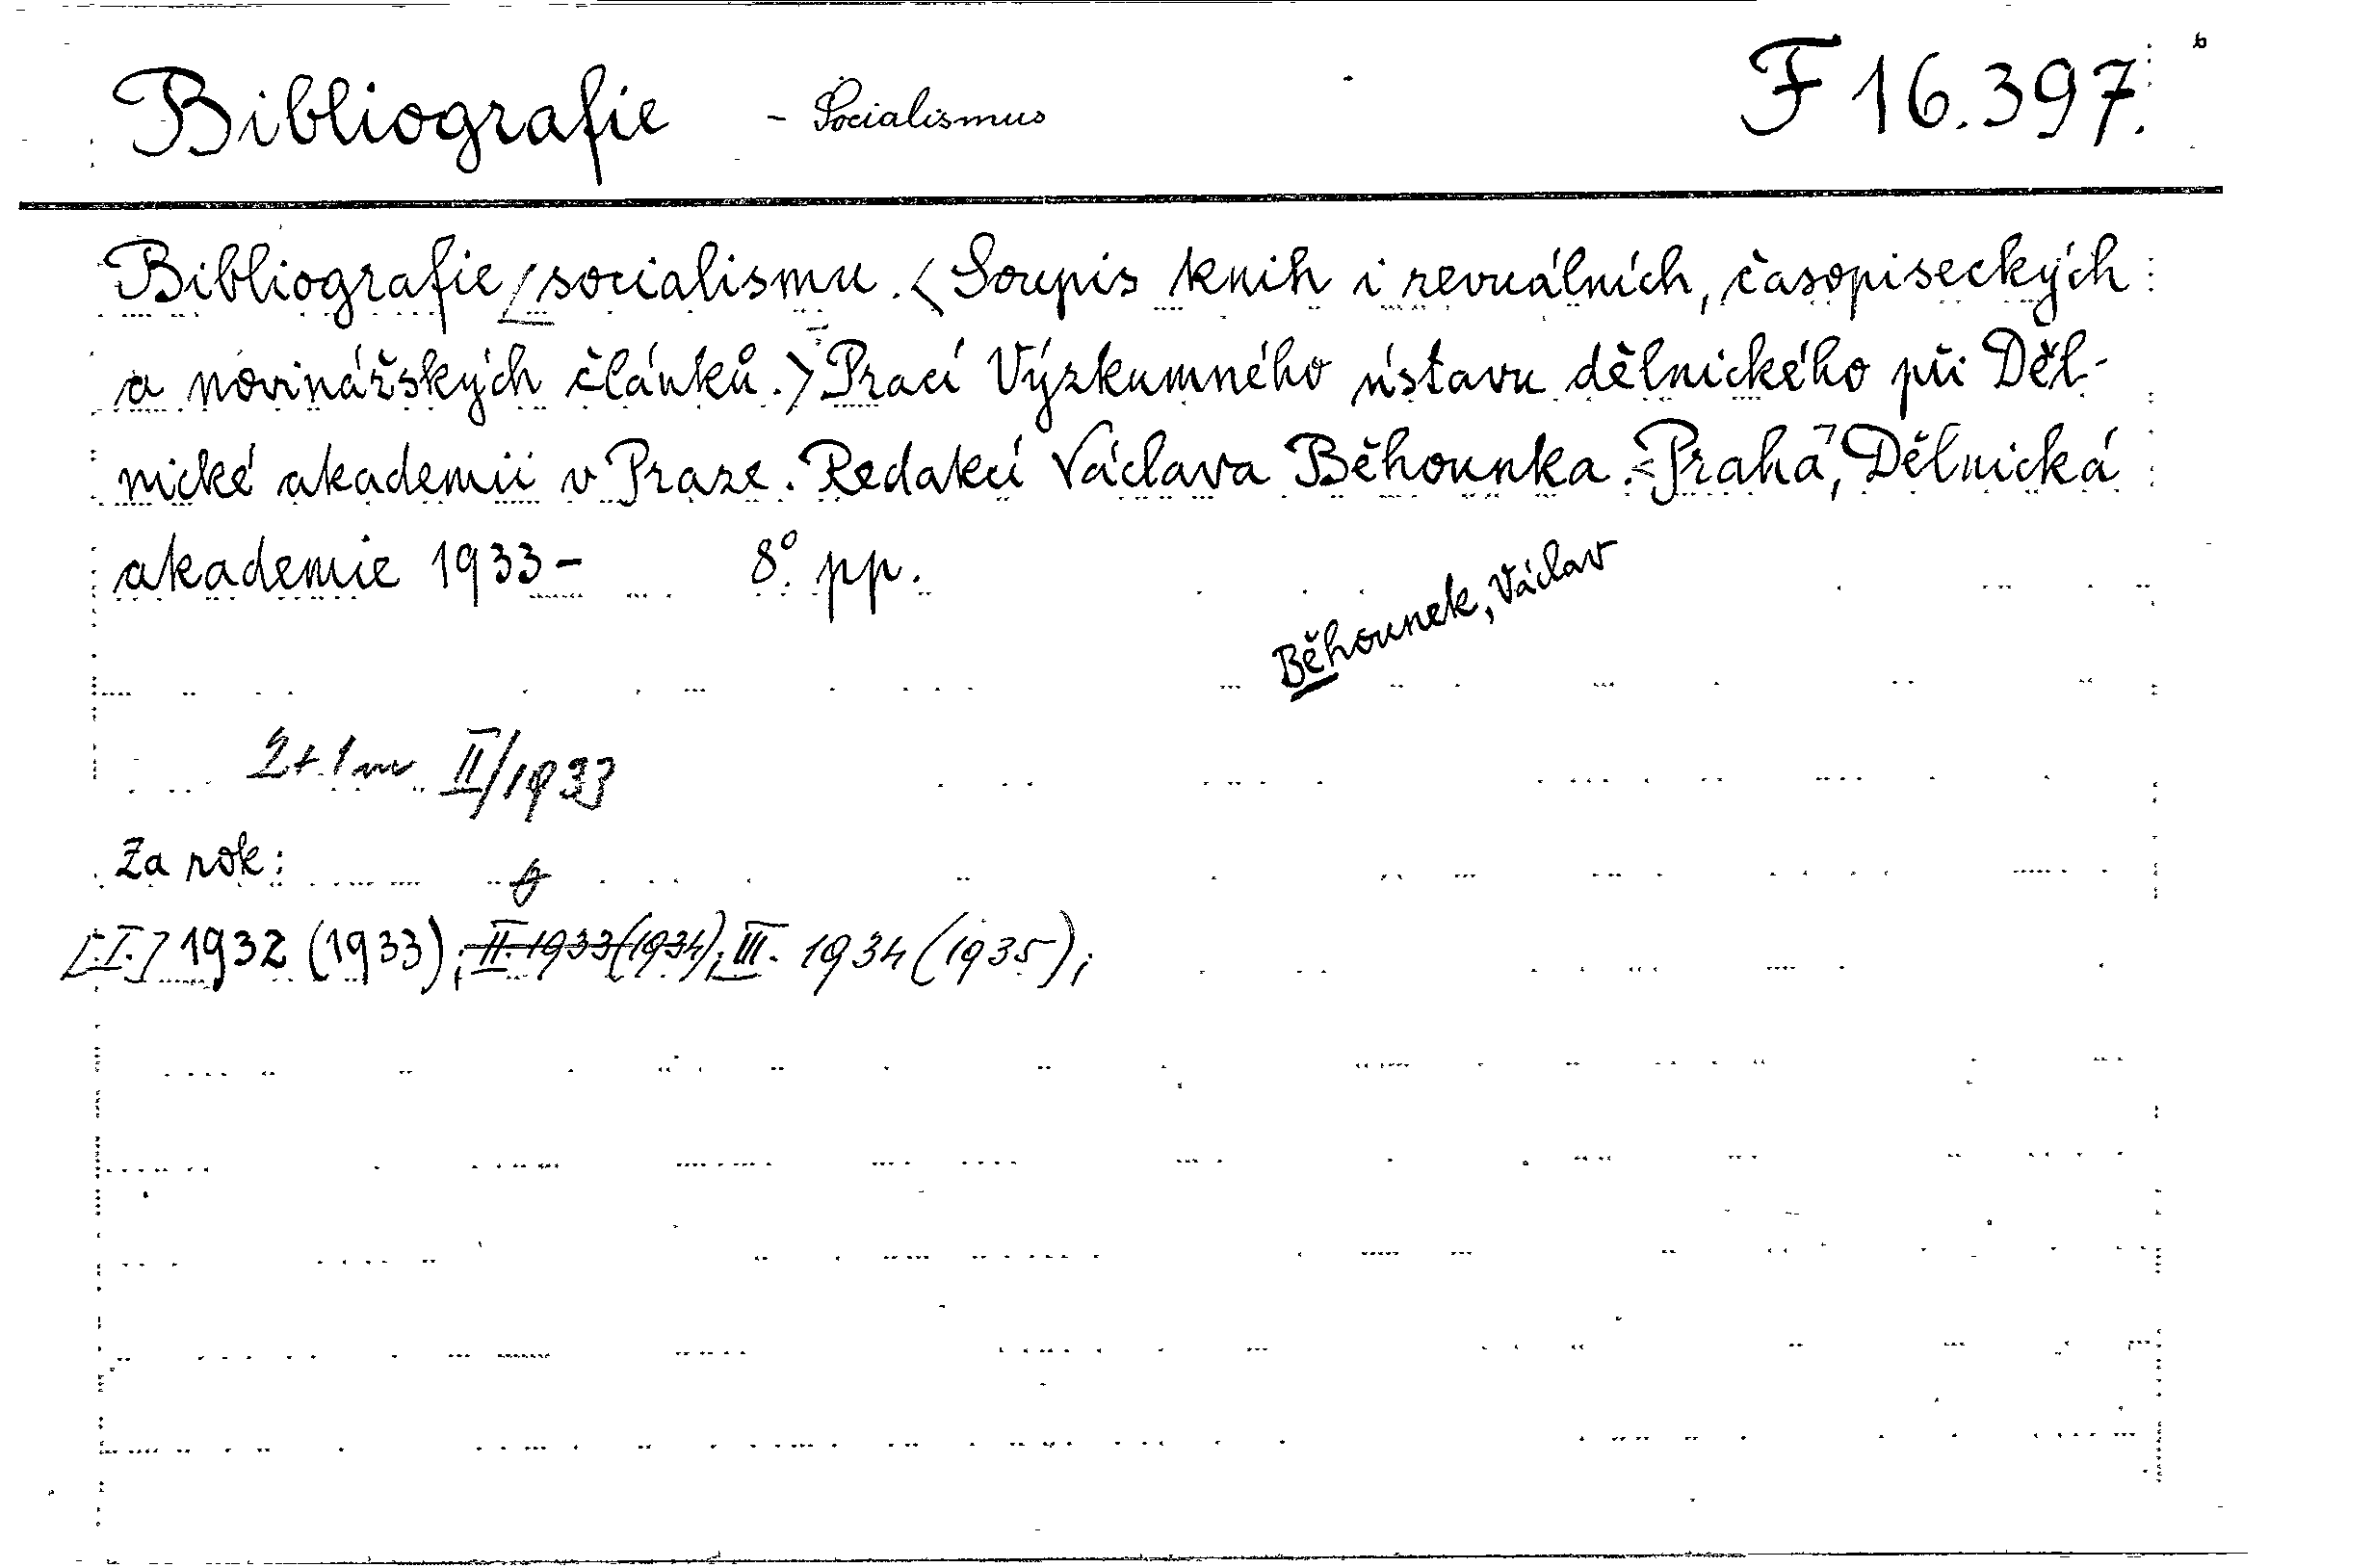 Bibliografie - Socialismus F 16.397.
Bibliografie socialismu. < Soupis knih i revuálních, časopiseckých
a novinářských článků. > Prací Výzkumného ústavu dělnického při Děl-
nické akademii v Praze. Redakcí Václava Běhounka. <Praha>, Dělnická
akademie 1933- 8° pp.
Běhounek, Václav
II/1933
Za rok:
[I.] 1932 (1933); II. 1933 (1934); III. 1934 (1935);